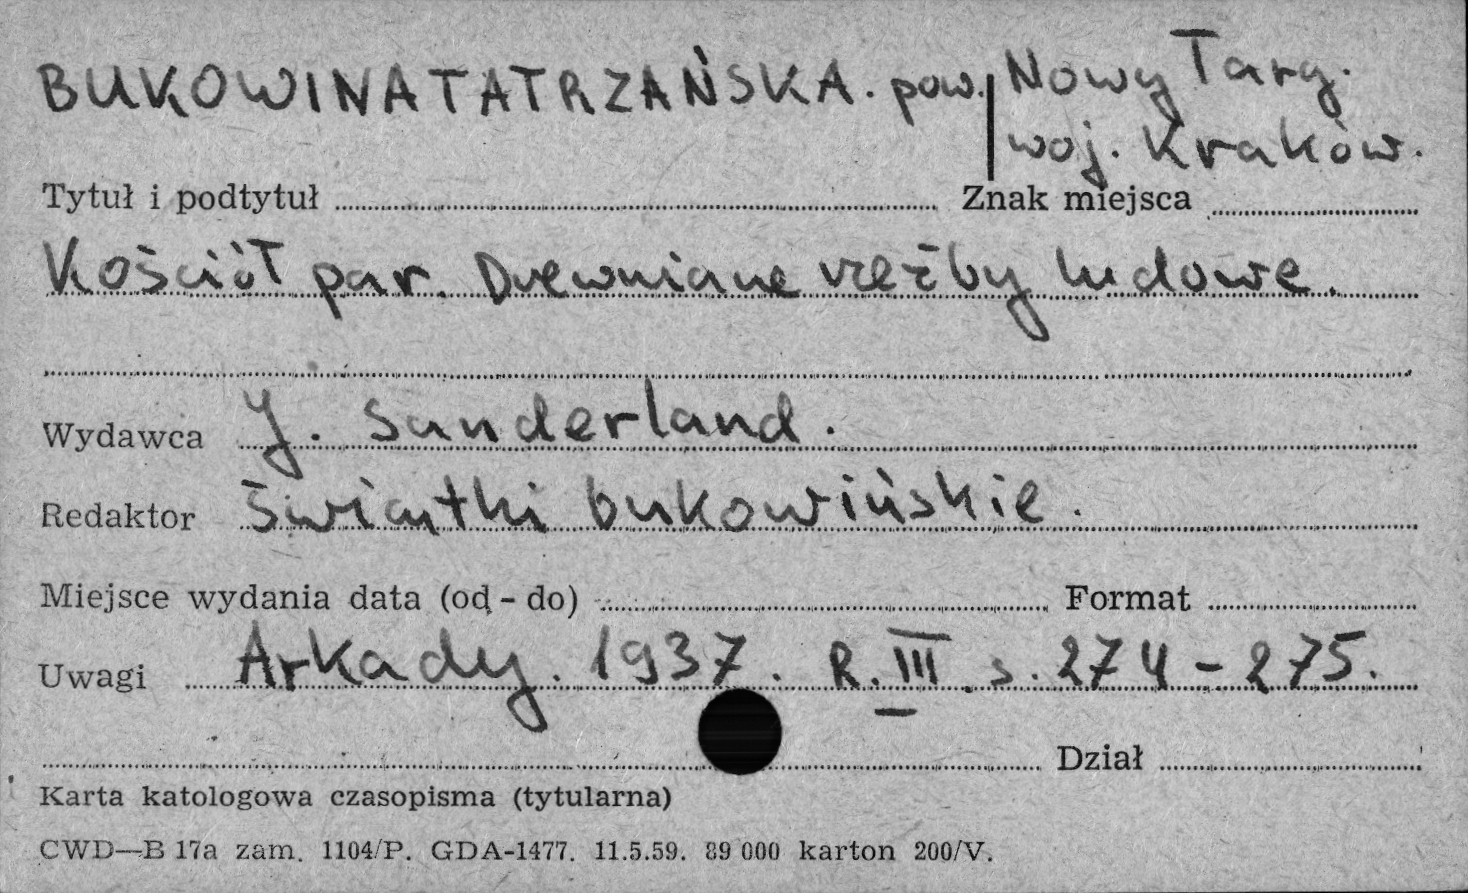 BUKOWINA TATRZAŃSKA. pow. Nowy Targ.
woj. Kraków.
Tytuł i podtytuł Znak miejsca
Kościół par. Drewniane rzeźby ludowe.
Wydawca J. Sanderland.
Redaktor Świątki bukowińskie.
Miejsce wydania data (od - do) Format
Uwagi Arkady. 1937. R. III. s. 274 - 275.
Dział
Karta katologowa czasopisma (tytularna)
CWD—B 17a zam. 1104/P. GDA-1477. 11.5.59. 89 000 karton 200/V.